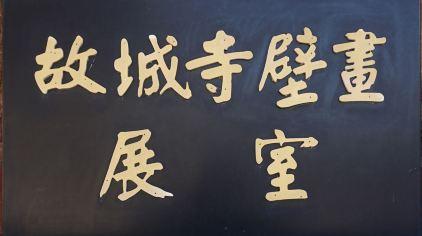 故城寺壁畫
展室